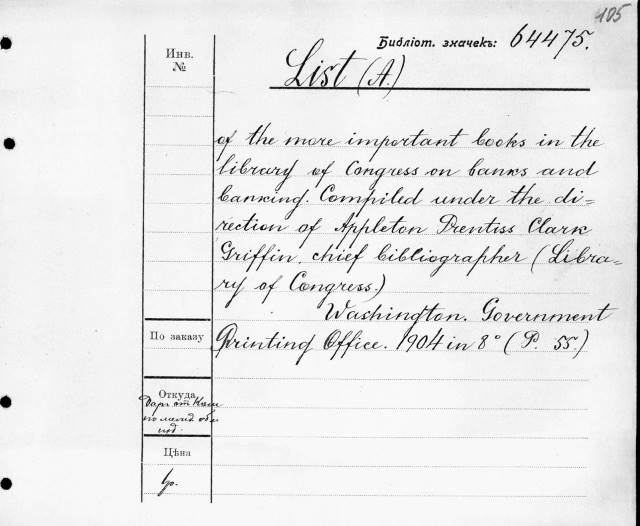 105
Библіот. значекъ: 64475.
Инв.
№
List (A.)
of the more important books in the
library of Congress on banks and
banking. Compiled under the di=
rection of Appleton Prentiss Clark
Griffin, chief bibliographer (Libra=
ry of Congress.)
Washington. Government
По заказу
Printing Office. 1904 in 8° (P. 55.)
Откуда
Даръ от
Цѣна